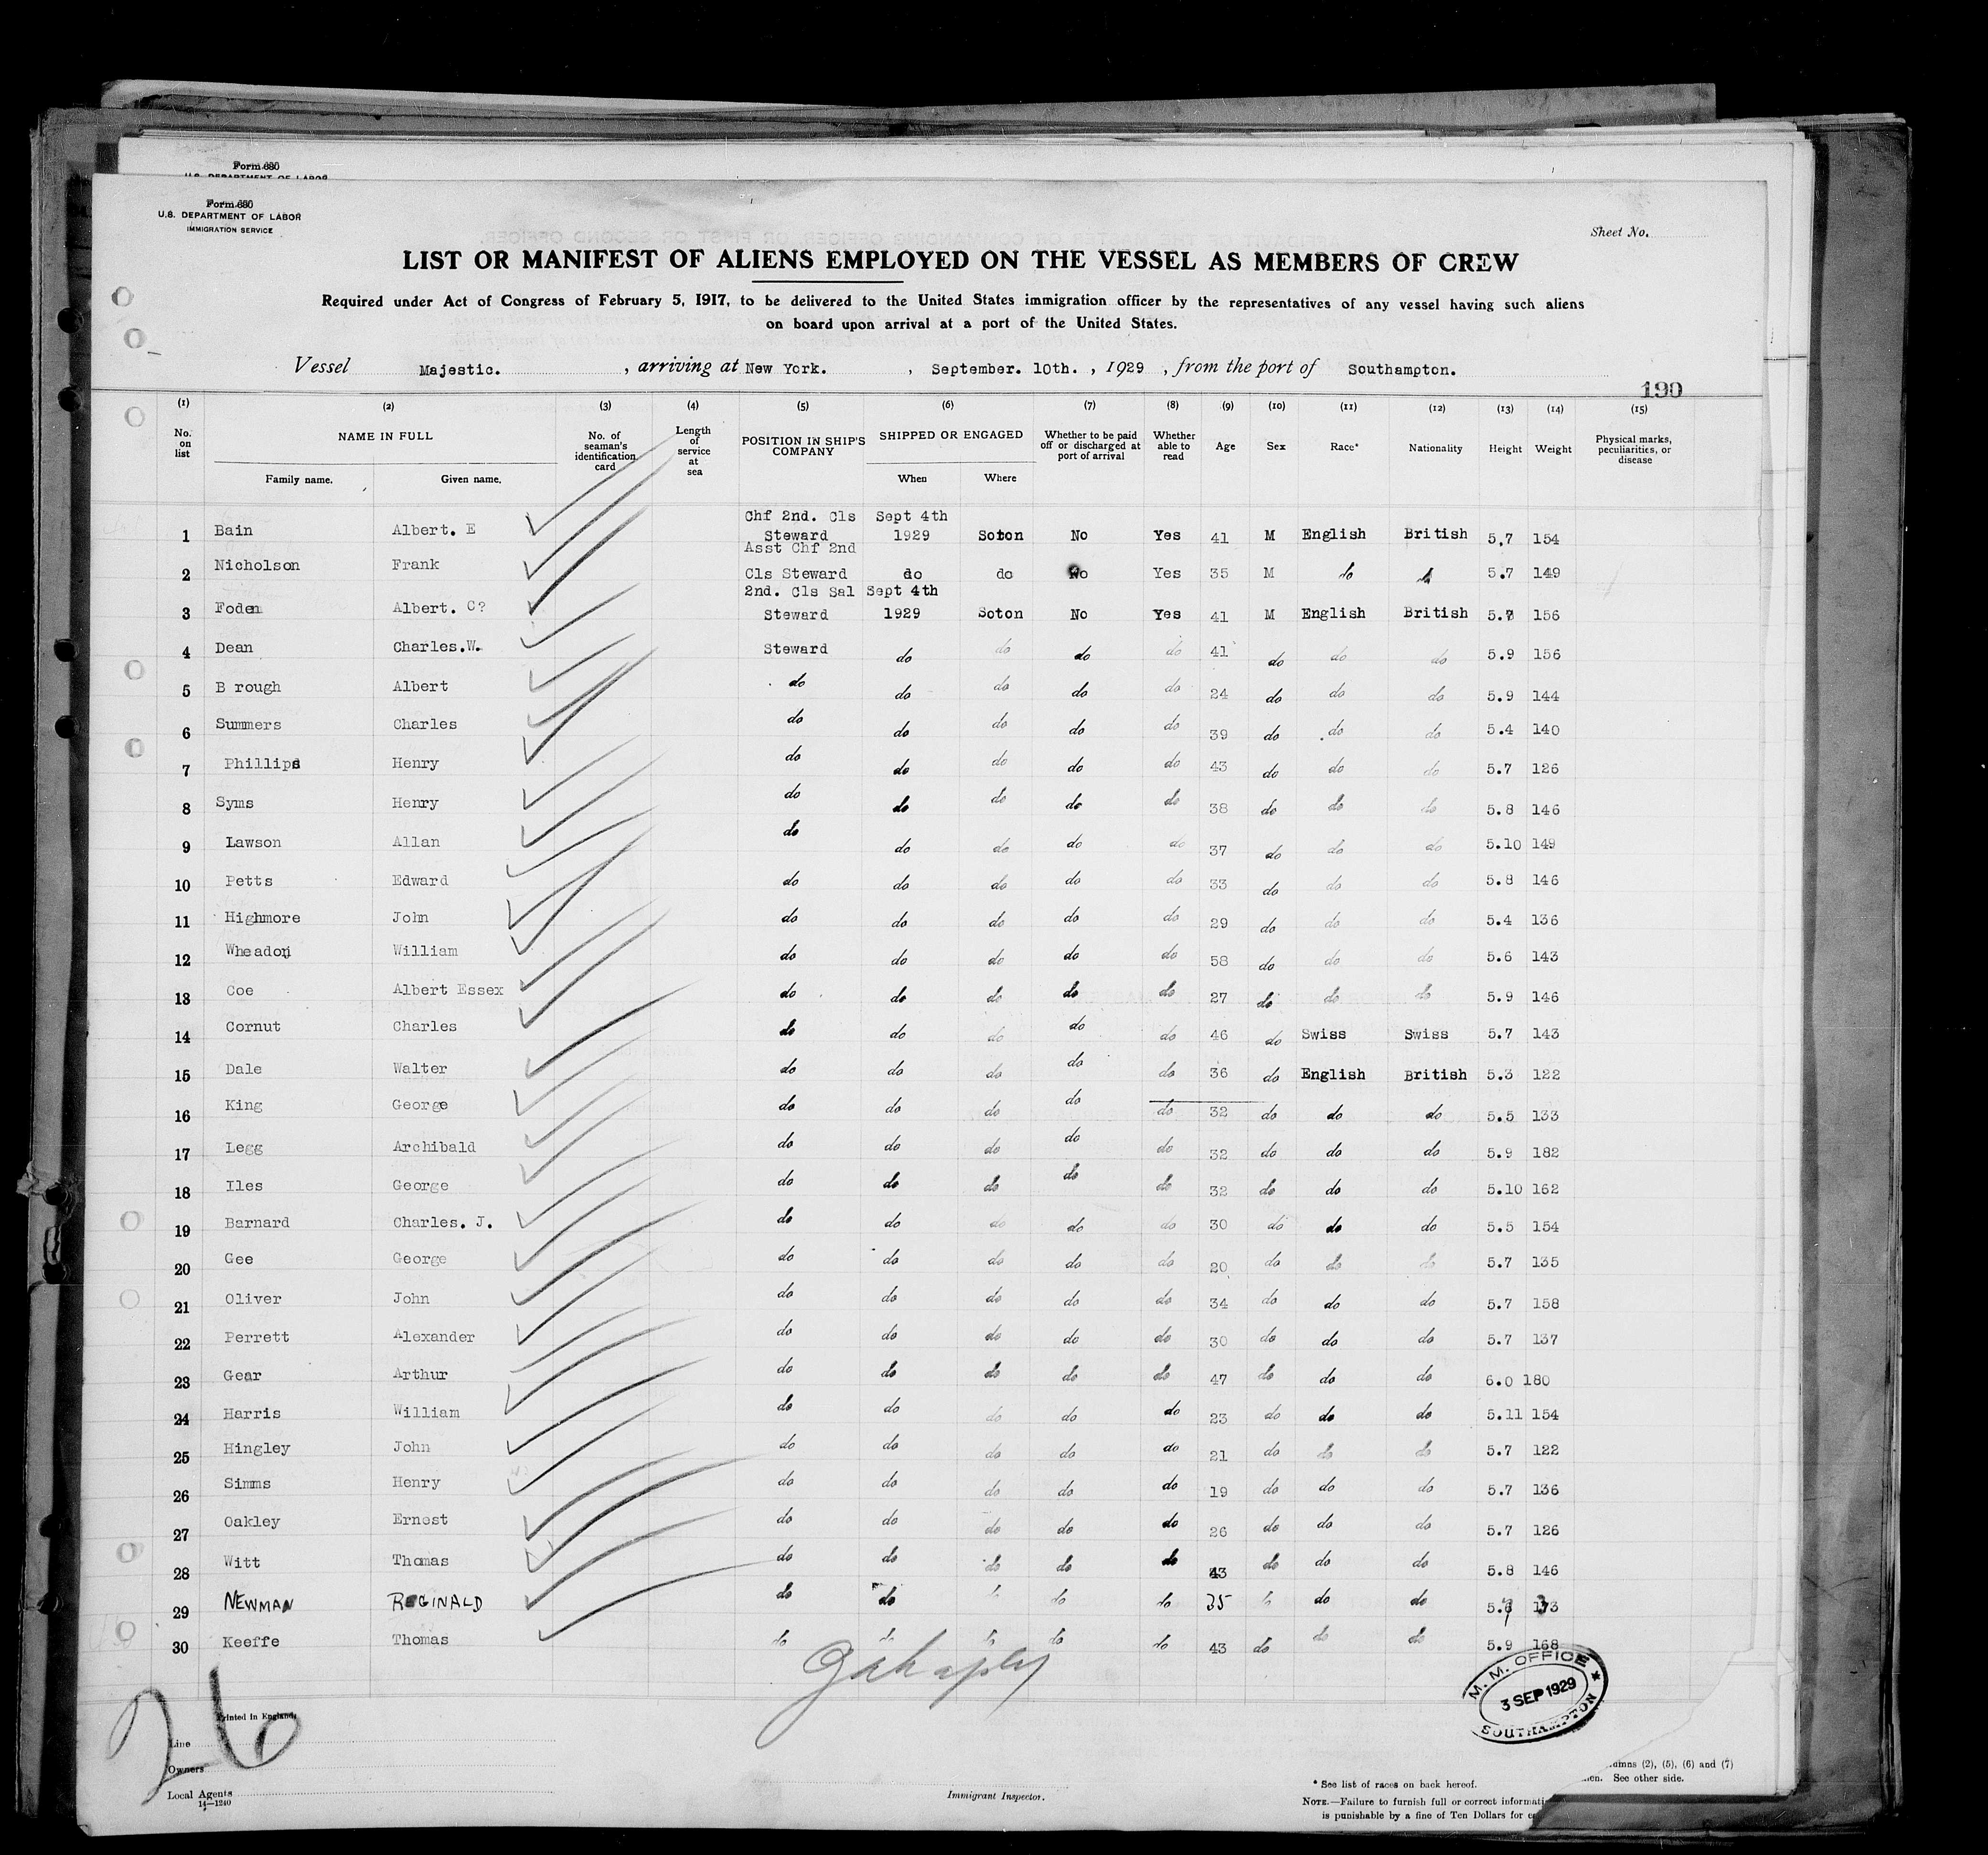 Form 680
U.S. DEPARTMENT OF LABOR
Form 680
U.S. DEPARTMENT OF LABOR
IMMIGRATION SERVICE
Sheet No.
LIST OR MANIFEST OF ALIENS EMPLOYED ON THE VESSEL AS MEMBERS OF CREW
Required under Act of Congress of February 5, 1917, to be delivered to the United States immigration officer by the representatives of any vessel having such aliens
on board upon arrival at a port of the United States.
Vessel Majestic. , arriving at New York. , September. 10th. , 1929 , from the port of Southampton.
190
(1) (2) (3) (4) (5) (6) (7) (8) (9) (10) (11) (12) (13) (14) (15)
No. on list NAME IN FULL No. of seaman's identification card Length of service at sea POSITION IN SHIP'S COMPANY SHIPPED OR ENGAGED Whether to be paid off or discharged at port of arrival Whether able to read Age Sex Race* Nationality Height Weight Physical marks, peculiarities, or disease
Family name. Given name. When Where
Chf 2nd. Cls Sept 4th
1 Bain Albert. E Steward 1929 Soton No Yes 41 M English British 5.7 154
Asst Chf 2nd
2 Nicholson Frank Cls Steward do do No Yes 35 M do do 5.7 149
2nd. Cls Sal Sept 4th
3 Foden Albert. C? Steward 1929 Soton No Yes 41 M English British 5.7 156
4 Dean Charles.W. Steward do do do do 41 do do do 5.9 156
5 B rough Albert do do do do do 24 do do do 5.9 144
6 Summers Charles do do do do do 39 do do do 5.4 140
7 Phillips Henry do do do do do 43 do do do 5.7 126
8 Syms Henry do do do do do 38 do do do 5.8 146
9 Lawson Allan do do do do do 37 do do do 5.10 149
10 Petts Edward do do do do do 33 do do do 5.8 146
11 Highmore John do do do do do 29 do do do 5.4 136
12 Wheadon William do do do do do 58 do do do 5.6 143
13 Coe Albert Essex do do do do do 27 do do do 5.9 146
14 Cornut Charles do do do do do 46 do Swiss Swiss 5.7 143
15 Dale Walter do do do do do 36 do English British 5.3 122
16 King George do do do do do 32 do do do 5.5 133
17 Legg Archibald do do do do do 32 do do do 5.9 182
18 Iles George do do do do do 32 do do do 5.10 162
19 Barnard Charles. J. do do do do do 30 do do do 5.5 154
20 Gee George do do do do do 20 do do do 5.7 135
21 Oliver John do do do do do 34 do do do 5.7 158
22 Perrett Alexander do do do do do 30 do do do 5.7 137
23 Gear Arthur do do do do do 47 do do do 6.0 180
24 Harris William do do do do do 23 do do do 5.11 154
25 Hingley John do do do do do 21 do do do 5.7 122
26 Simms Henry do do do do do 19 do do do 5.7 136
27 Oakley Ernest do do do do do 26 do do do 5.7 126
28 Witt Thomas do do do do do 43 do do do 5.8 146
29 NEWMAN REGINALD do do do do do 35 do do do 173
30 Keeffe Thomas do do do do do 43 do do do 5.9 168
M. M. OFFICE
3 SEP 1929
SOUTHAMPTON
26
Printed in England.
Line
Owners
Local Agents
14—1240
Immigrant Inspector.
* See list of races on back hereof.
umns (2), (5), (6) and (7)
men. See other side.
NOTE.—Failure to furnish full or correct informati
is punishable by a fine of Ten Dollars for